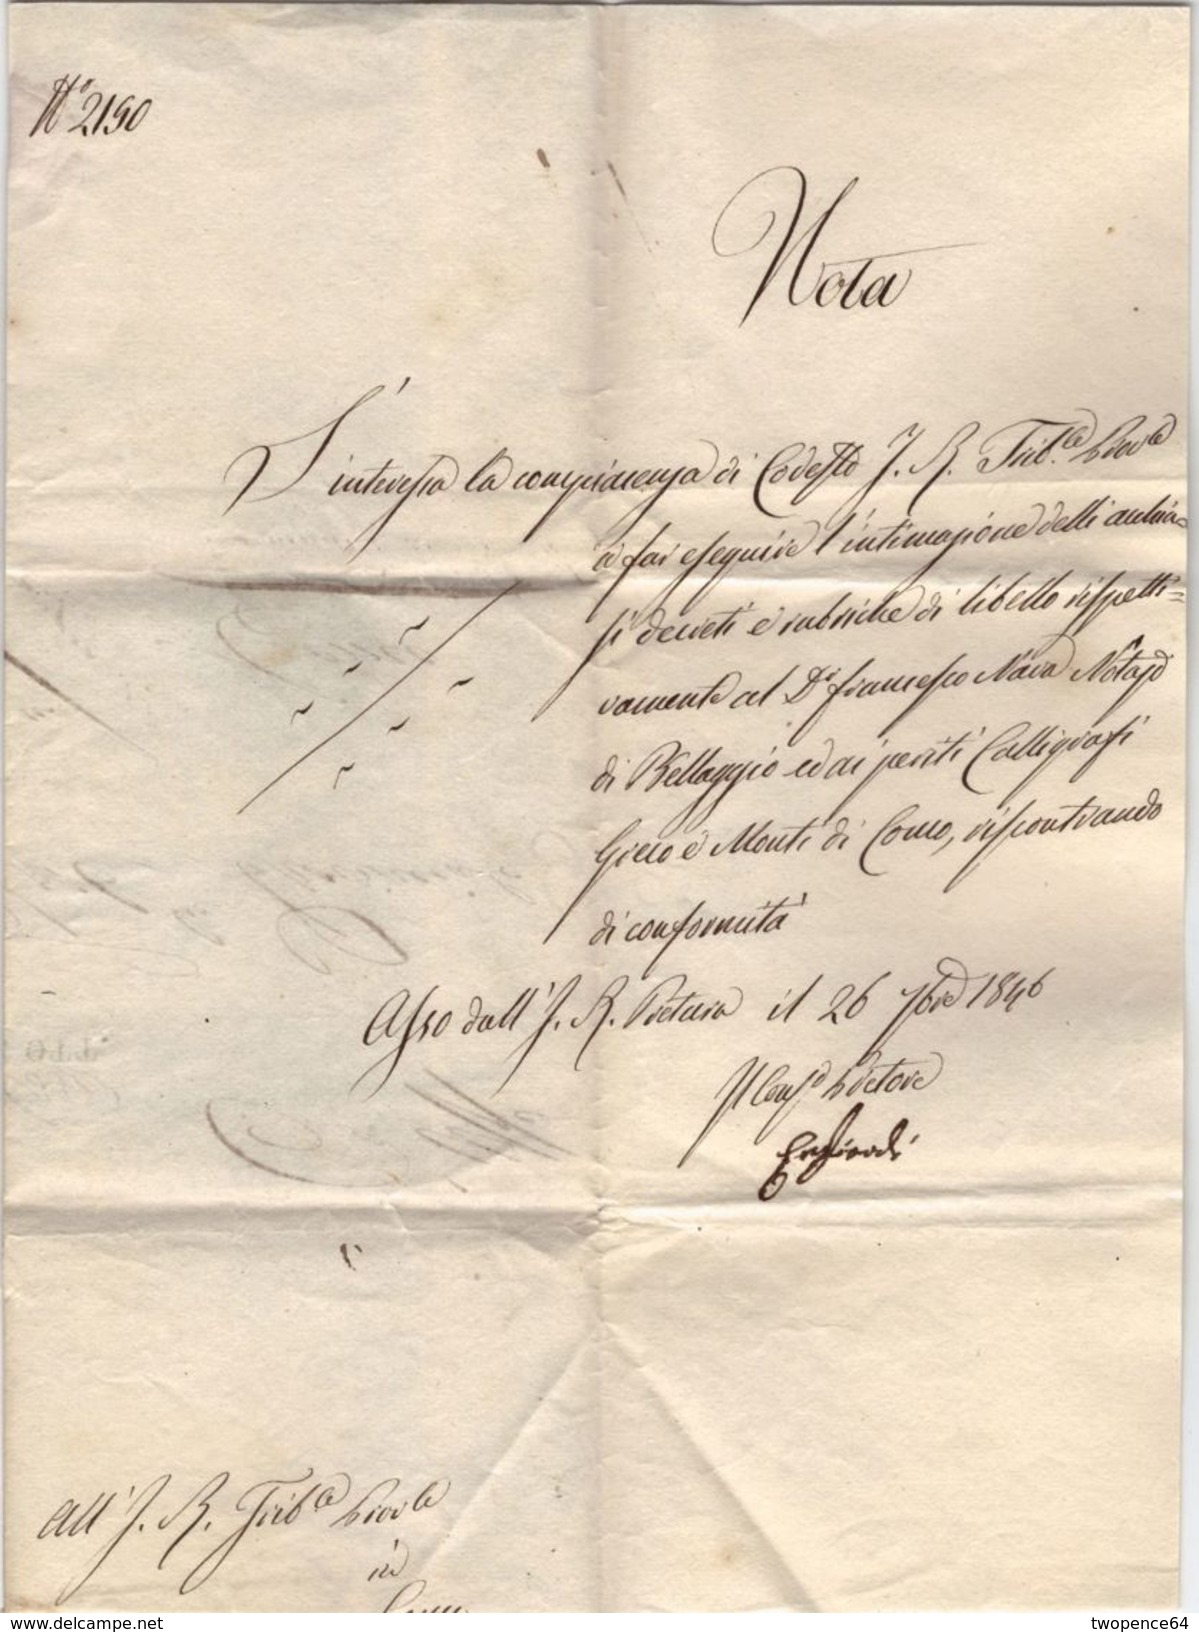 N° 2190
Nota
S'interessa la compiacenza di Codesto I. R. Trib.le Prov.le
a far eseguire l'intimazione delli annes=
si decreti e rubriche di libello rispetti=
vamente al Dr. Francesco Nava Notajo
di Bellaggio ed ai periti Calligrafi
e Monti di Como, riscontrando
di conformità
Asso dall' I. R. Pretura il 26 7bre 1846
Il Cons.e Pretore
All' I. R. Trib.le Prov.le
in
Como
www.delcampe.net
twopence64